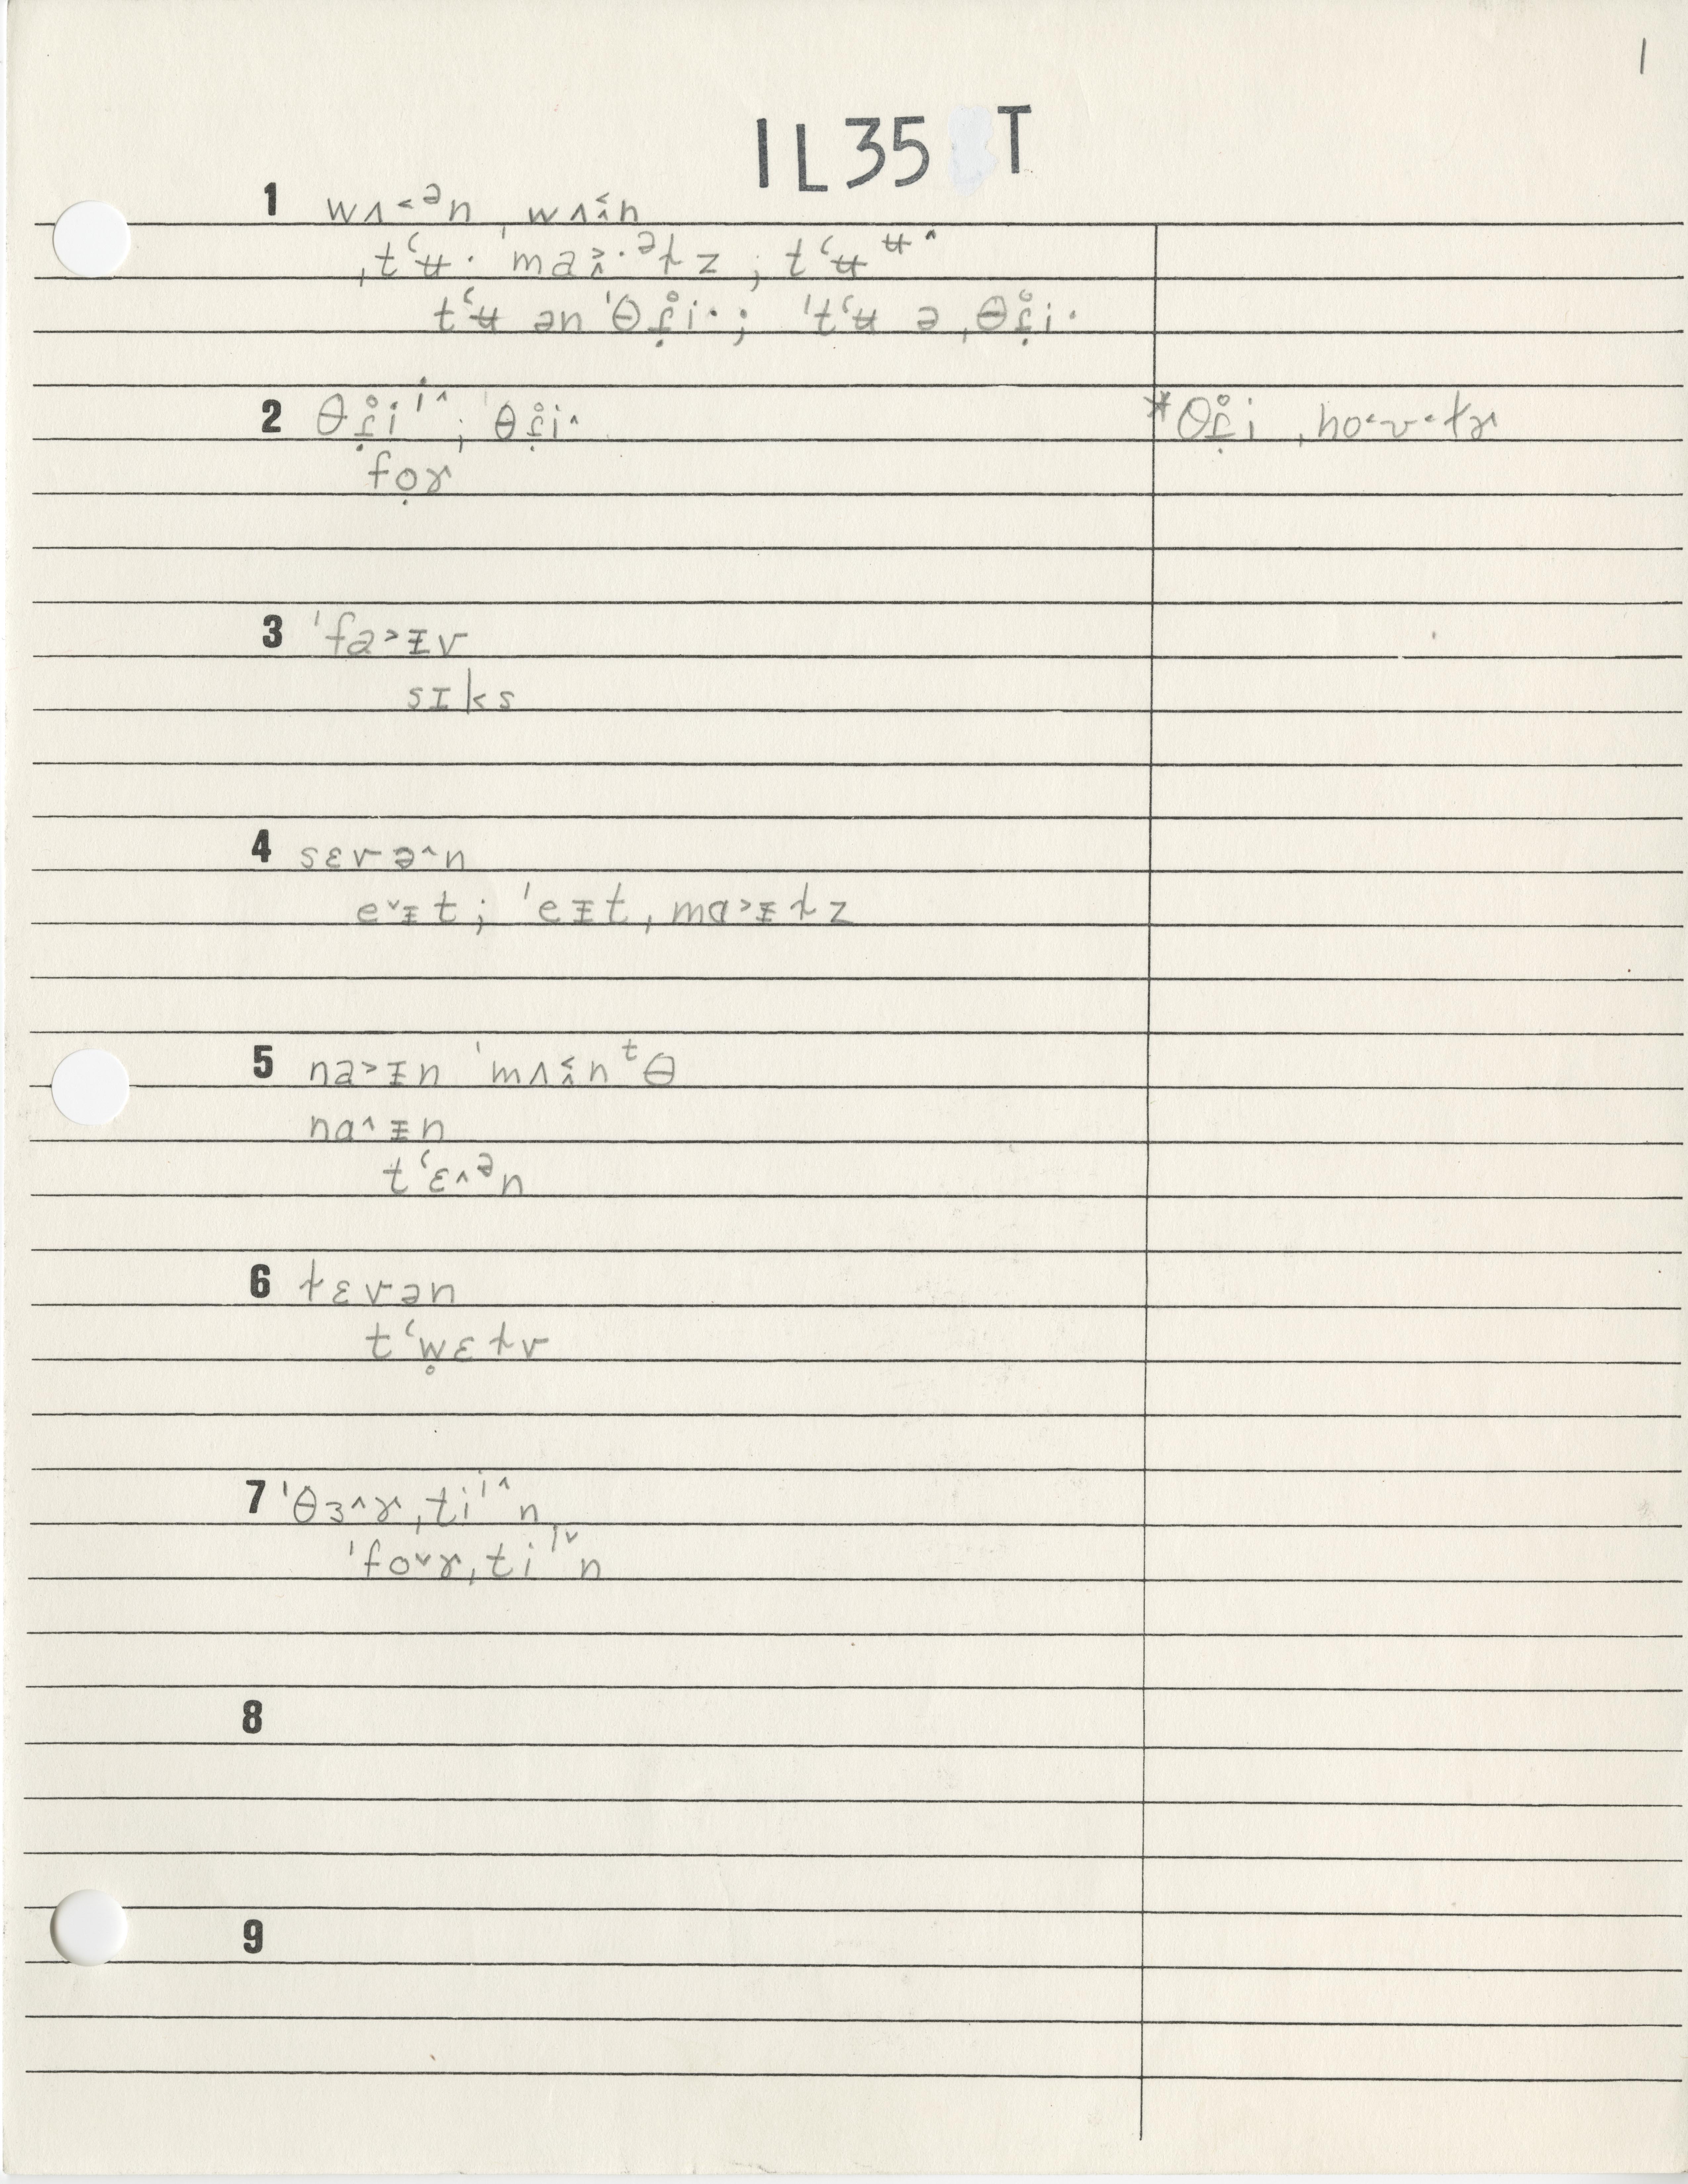 1
IL35 T
1 wʌ˂ᵊn wʌ˂̭n
ˌtʻʉ· ˈma˃̭·ᵊɫz ; tʻʉᶶ^
tʻʉ ən ˈθɹ̣̊i· ; ˈtʻʉ ə ˌθɹ̣̊i·
2 θɹ̣̊iⁱ^ ; ˈθɹ̣̊i^ *θɹ̣̊i ˌho˂v˂ɫɚ
fọɚ
3 ˈfa˃ᵻv
sɪks
4 sɛvə^n
e˅ᵻt ; ˈeᵻt ˌmɑ˃ᵻɫz
5 na˃ᵻn ˈmʌ˂̭nᵗθ
nɑ^ᵻn
tʻɛ^ᵊn
6 ɫɛvən
tʻw̥ɛɫv
7 ˈθɜ^ɚˌtiⁱ^n
ˈfo˅ɚˌtiⁱ˅n
8
9